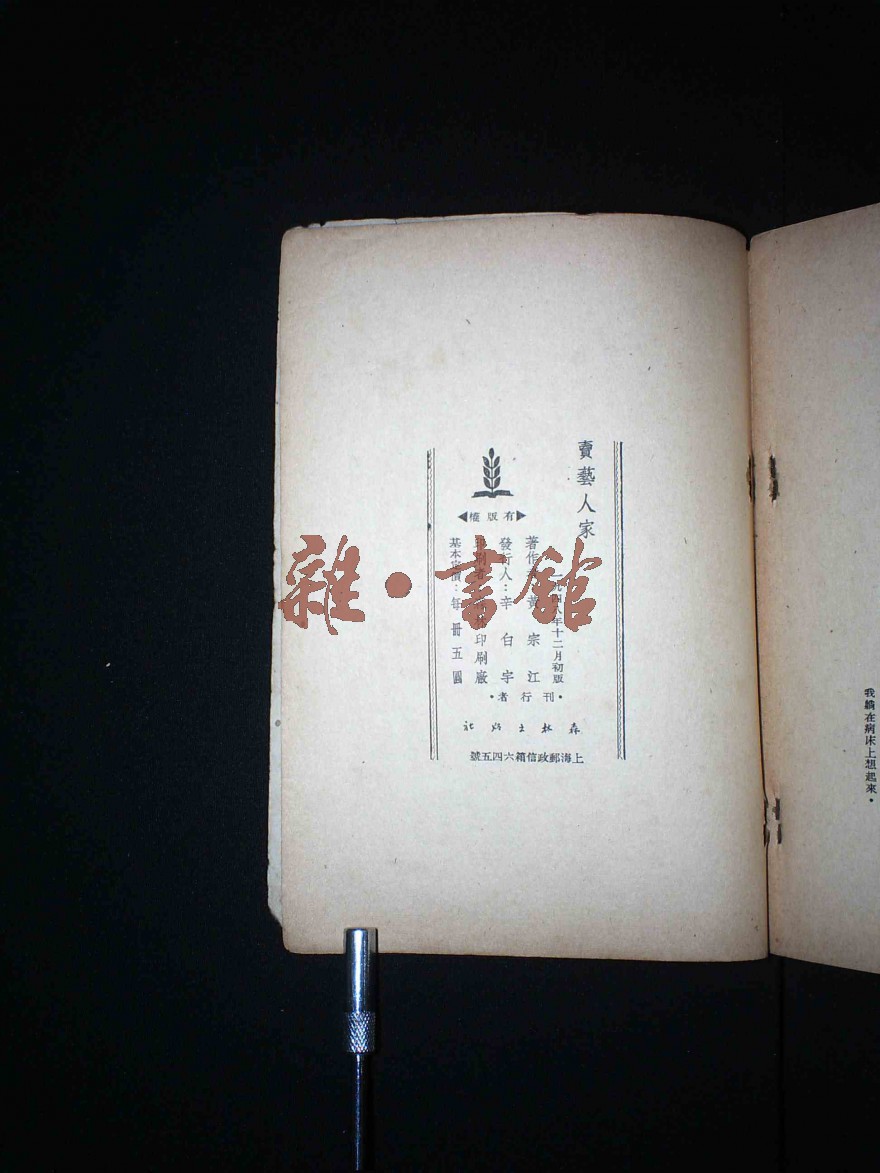 賣藝人家
一九四八年十二月初版
著作者：黃宗江
發行人：辛白宇
印刷者：森林印刷廠
基本定價：每冊五圓
有版權
·刊行者·
森林出版社
上海郵政信箱六四五號
我躺在病床上想起來。
雜·書館